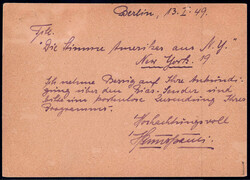 Berlin, 13.I.49.
"Die Stimme Amerikas aus N.Y."
New York. 19
Ich nehme Bezug auf Ihre Ankündi-
gung über den Rias-Sender und
bitte um kostenlose Zusendung Ihrer
Programme.
Hochachtungsvoll